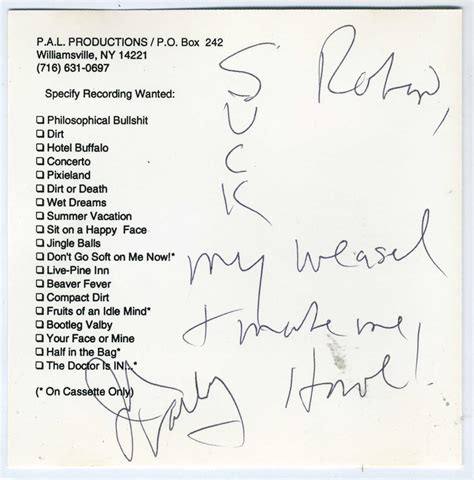 P.A.L. PRODUCTIONS / P.O. Box 242
Williamsville, NY 14221
(716) 631-0697
Specify Recording Wanted:
❑ Philosophical Bullshit
❑ Dirt
❑ Hotel Buffalo
❑ Concerto
❑ Pixieland
❑ Dirt or Death
❑ Wet Dreams
❑ Summer Vacation
❑ Sit on a Happy Face
❑ Jingle Balls
❑ Don't Go Soft on Me Now!*
❑ Live-Pine Inn
❑ Beaver Fever
❑ Compact Dirt
❑ Fruits of an Idle Mind*
❑ Bootleg Valby
❑ Your Face or Mine
❑ Half in the Bag*
❑ The Doctor Is IN...*
(* On Cassette Only)
Robin,
S
U
C
K
my weasel
& make me
Howl!